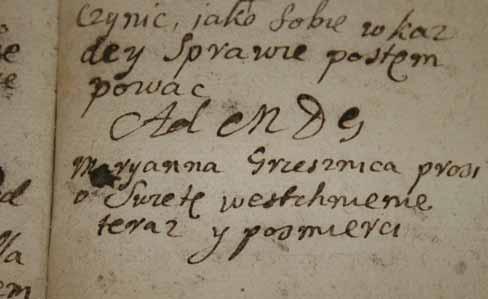 Czynic, jako Sobie w kaz
dey Sprawie postem
powac
Ad M D G
Maryanna Grzesznica prosi
o Swietę westchnienie
teraz y po smierci